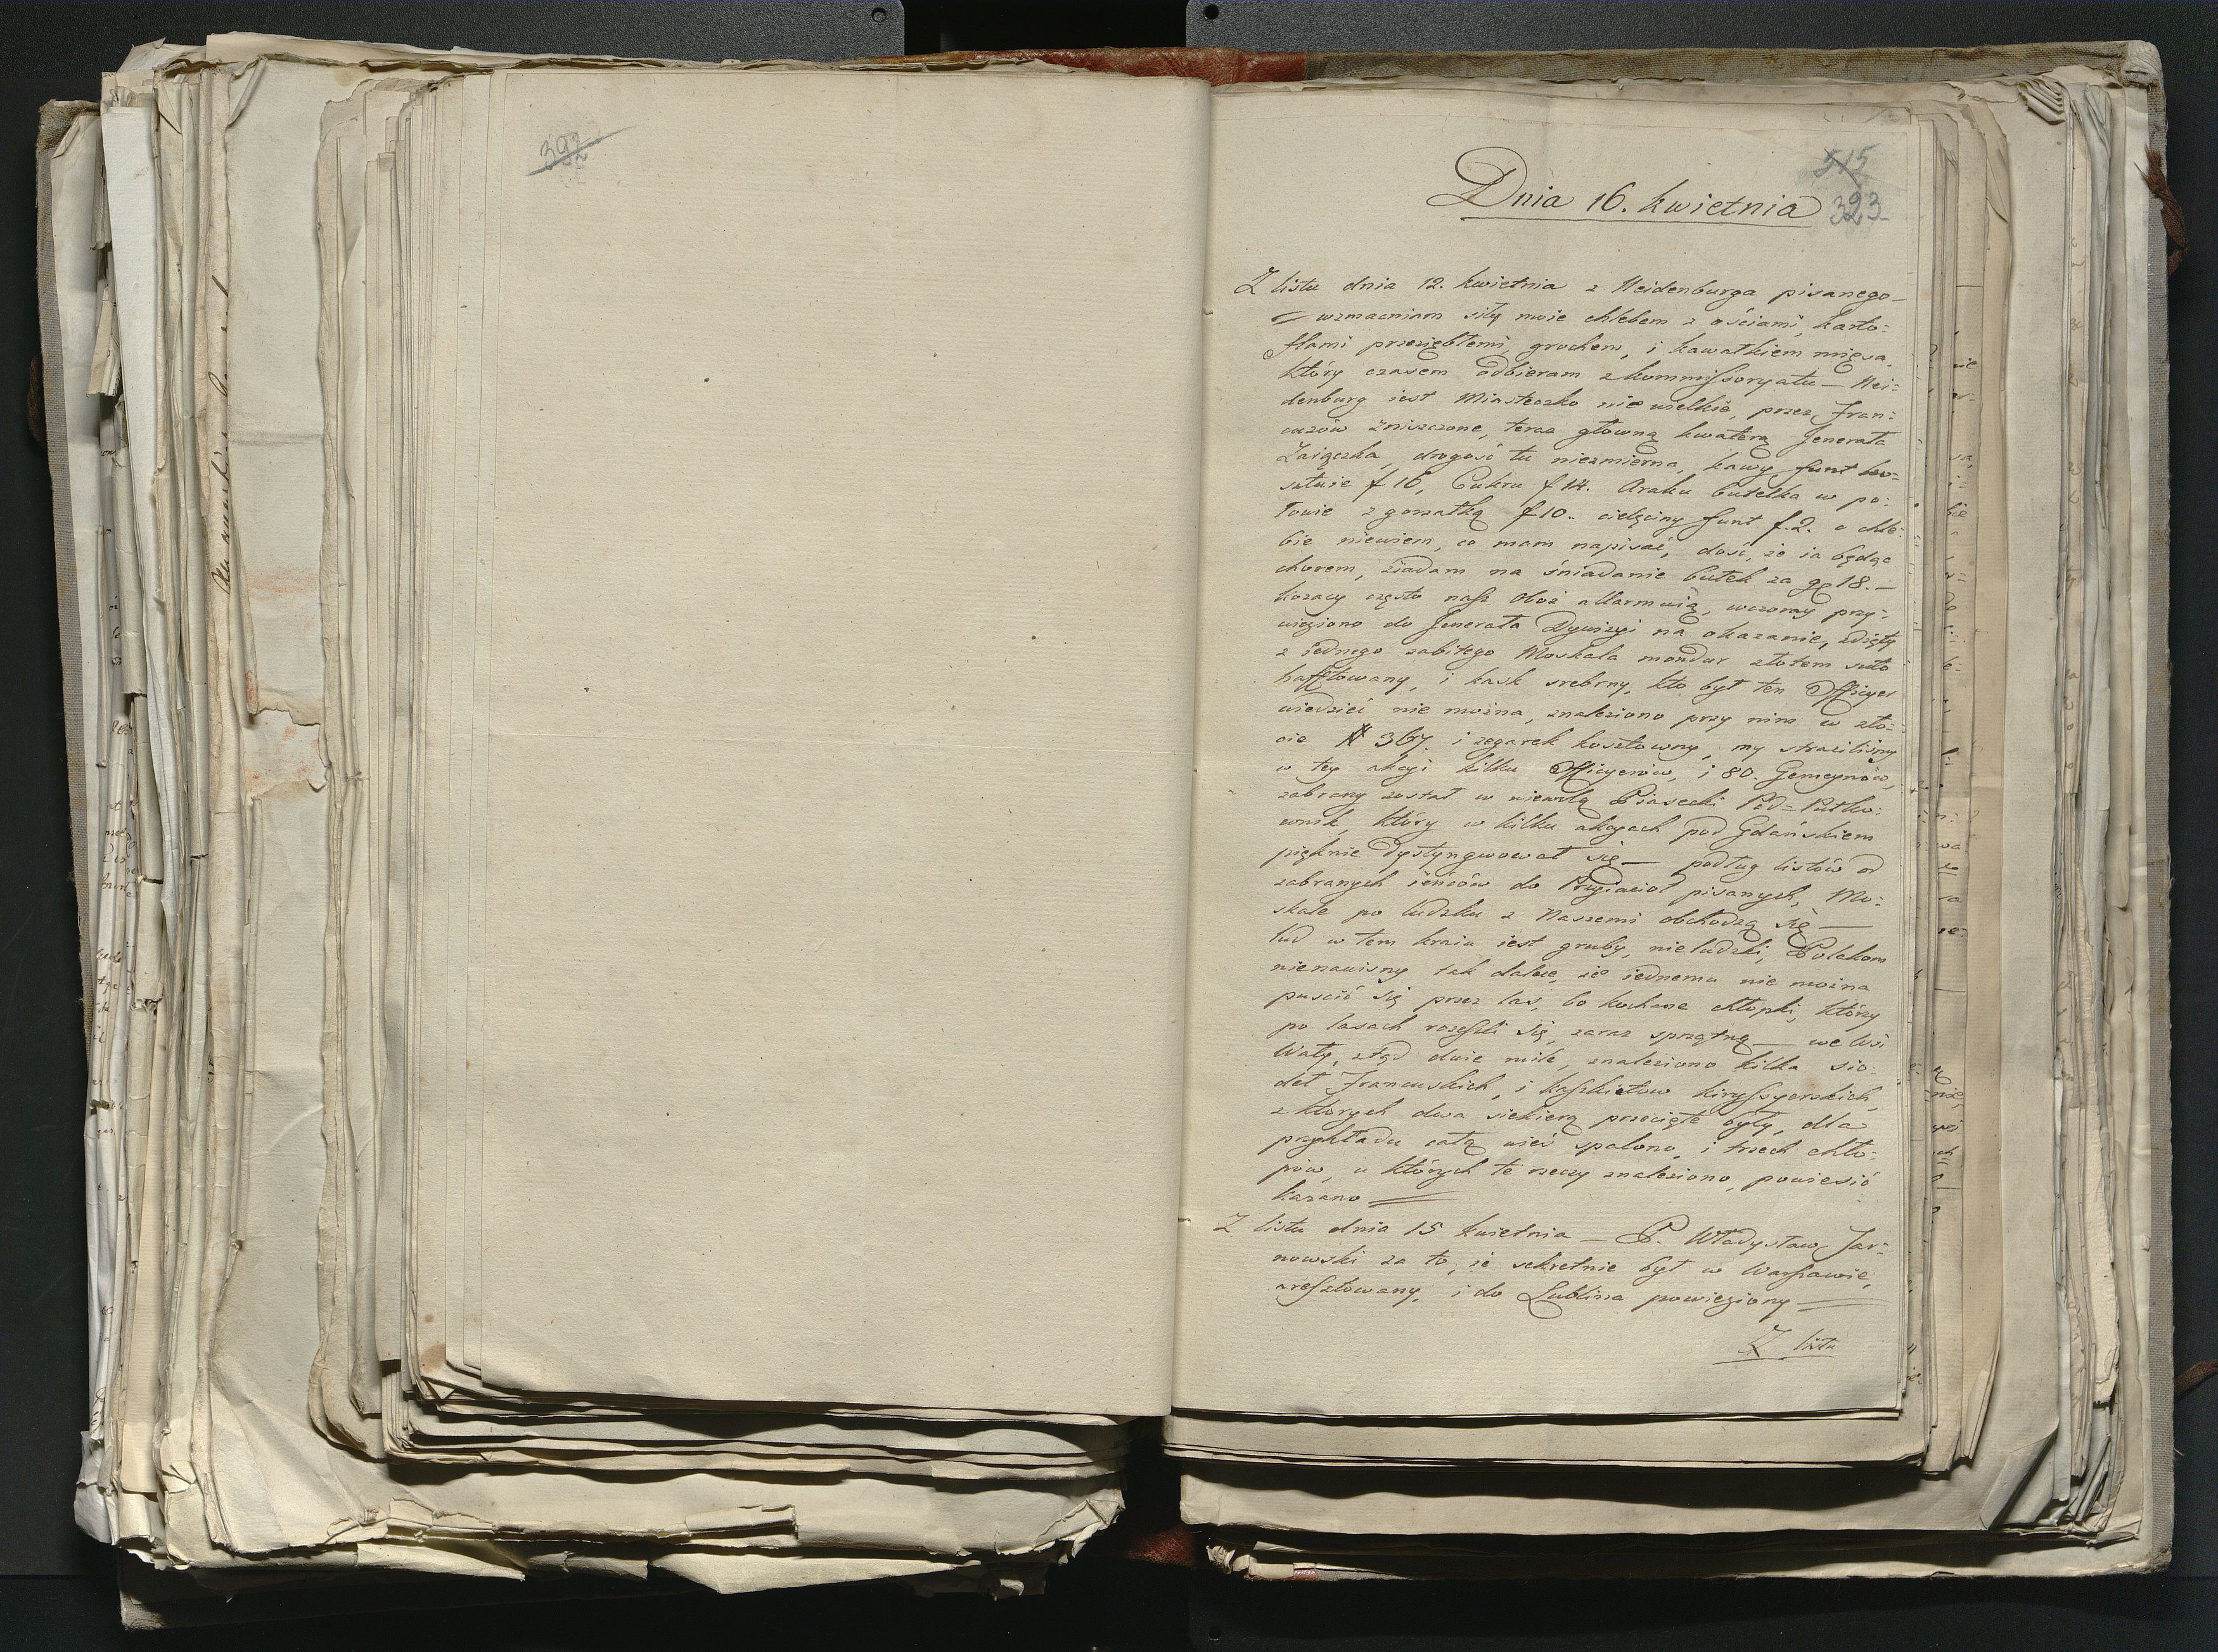 392
515
Dnia 16. kwietnia 323
Z listu dnia 12. kwietnia z Neidenburga pisanego
wzmacniam siłę moie chlebem z ościami, karto=
flami przeziębłemi, grochem, i kawałkiem mięsa,
który czasem odbieram z kommissoryatu — Nei=
denburg iest Miasteczko nie wielkie, przez Fran=
cuzów zniszczone, teraz główną kwaterą Jenerała
Zaiączka, drogość tu niezmierna, kawy funt ko=
sztuie f 16, Cukru f 14. Araku butelka w po=
łowie z gorzałką f 10. cielęciny funt f. 2. o chle=
bie niewiem, co mam napisać, dość, że ia będąc
chorem, ziadam na śniadanie bułek za gr 18. —
kozacy często nasz obóz allarmuią, wczoray przy=
wieziono do Jenerała Dywizyi na okazanie, zdięty
z iednego zabitego Moskala mondur złotem suto
hafftowany, i kask srebrny, kto był ten Officyer
wiedzieć nie można, znaleziono przy nim w zło=
cie # 367. i zegarek kosztowny, my straciliśmy
w tey akcyi kilku Officyerów, i 80. Gemeynów,
zabrany został w niewolą Piasecki Pod=Putko=
wnik, który w kilku akcyach pod Gdańskiem
pięknie dystyngwował się — podług listów od
zabranych ieńców do Przyiaciół pisanych, Mo=
skale po ludzku z Naszemi obchodzą się —
lud w tem kraiu iest gruby, nieludzki, Polakom
nienawisny tak dalece, że iednemu nie można
puścić się przez las, bo kochane chłopki, którzy
po lasach rozeszli się, zaraz sprzątną — we Wsi
Wały, ztąd dwie mile, znaleziono kilka sio=
deł Francuskich, i kaszkietow kiryssyerskich,
z ktorych dwa siekierą przecięte były, dla
przykładu całą wieś spalono, i trzech chło=
pów, u których te rzeczy znaleziono, powiesić
kazano
Z listu dnia 15 kwietnia — P. Władysław Tar=
nowski za to, że sekretnie był w Warszawie,
aresztowany, i do Lublina powieziony —
Z listu